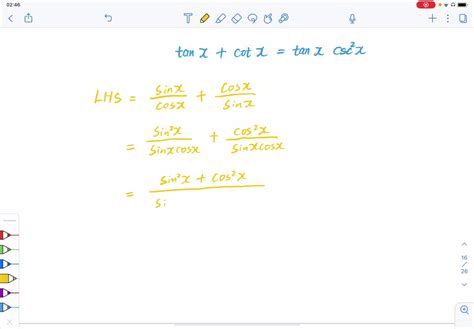 02:46
tan x + cot x = tan x csc²x
LHS = sinx/cosx + cosx/sinx
= sin²x/sinxcosx + cos²x/sinxcosx
= sin²x + cos²x/si
16
/
26